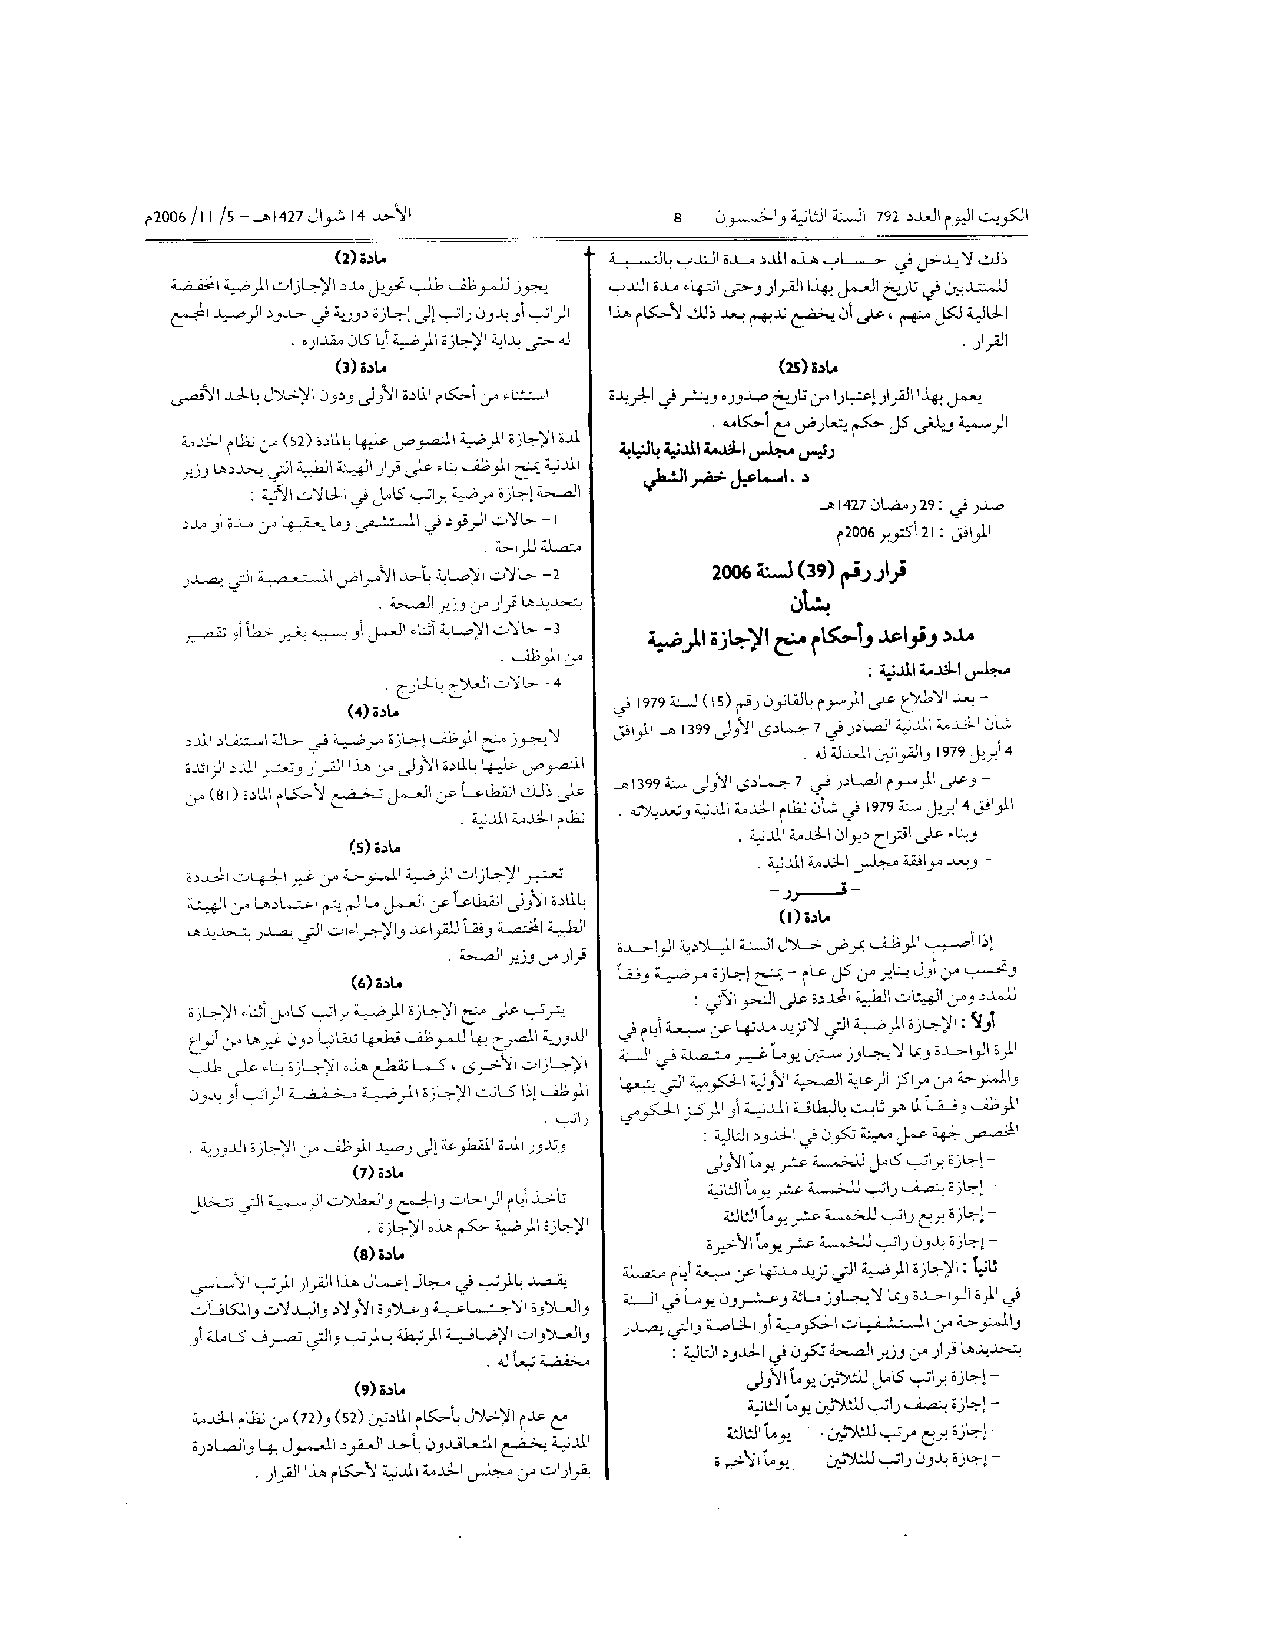 الكويت اليوم العدد 792 السنة الثانية والخمسون
8
الأحد 14 شوال 1427هـ - 5/ 11/ 2006م
ذلك لا يدخل في حساب هذه المدد مدة الندب بالنسبة
للمنتدبين في تاريخ العمل بهذا القرار وحتى انتهاء مدة الندب
الحالية لكل منهم ، على أن يخضع ندبهم بعد ذلك لأحكام هذا
القرار .
مادة (25)
يعمل بهذا القرار إعتبارا من تاريخ صدوره وينشر في الجريدة
الرسمية ويلغى كل حكم يتعارض مع أحكامه .
رئيس مجلس الخدمة المدنية بالنيابة
د . اسماعيل خضر الشطي
صدر في : 29 رمضان 1427هـ
الموافق : 21 أكتوبر 2006م
قرار رقم (39) لسنة 2006
بشأن
مدد وقواعد وأحكام منح الإجازة المرضية
مجلس الخدمة المدنية :
- بعد الاطلاع على المرسوم بالقانون رقم (15) لسنة 1979 في
شأن الخدمة المدنية الصادر في 7 جمادى الأولى 1399 هـ الموافق
4 أبريل 1979 والقوانين المعدلة له .
- وعلى المرسوم الصادر في 7 جمادى الأولى سنة 1399هـ
الموافق 4 ابريل سنة 1979 في شأن نظام الخدمة المدنية وتعديلاته .
وبناء على اقتراح ديوان الخدمة المدنية .
- وبعد موافقة مجلس الخدمة المدنية .
- قـــــرر -
مادة (1)
إذا أصيب الموظف بمرض خلال السنة الميلادية الواحدة
وتحسب من أول يناير من كل عام - يمنح إجازة مرضية وفقاً
للمدد ومن الهيئات الطبية المحددة على النحو الآتي :
أولاً : الإجازة المرضية التي لا تزيد مدتها عن سبعة أيام في
المرة الواحدة وبما لا يجاوز ستين يوماً غير متصلة في السنة
والممنوحة من مراكز الرعاية الصحية الأولية الحكومية التي يتبعها
الموظف وفقاً لما هو ثابت بالبطاقة المدنية أو المركز الحكومي
المخصص لجهة عمل معينة تكون في الحدود التالية :
- إجازة براتب كامل للخمسة عشر يوماً الأولى
- إجازة بنصف راتب للخمسة عشر يوماً الثانية
- إجازة بربع راتب للخمسة عشر يوماً الثالثة
- إجازة بدون راتب للخمسة عشر يوماً الأخيرة
ثانياً : الإجازة المرضية التي تزيد مدتها عن سبعة أيام متصلة
في المرة الواحدة وبما لا يجاوز مائة وعشرون يوماً في السنة
والممنوحة من المستشفيات الحكومية أو الخاصة والتي يصدر
بتحديدها قرار من وزير الصحة تكون في الحدود التالية :
- إجازة براتب كامل للثلاثين يوماً الأولى
- إجازة بنصف راتب للثلاثين يوماً الثانية
- إجازة بربع مرتب للثلاثين يوماً الثالثة
- إجازة بدون راتب للثلاثين يوماً الأخيرة
مادة (2)
يجوز للموظف طلب تحويل مدد الإجازات المرضية المخفضة
الراتب أو بدون راتب إلى إجازة دورية في حدود الرصيد المجمع
له حتى بداية الإجازة المرضية أيا كان مقداره .
مادة (3)
استثناء من أحكام المادة الأولى ودون الإخلال بالحد الأقصى
لمدة الإجازة المرضية المنصوص عليها بالمادة (52) من نظام الخدمة
المدنية يمنح الموظف بناء على قرار الهيئة الطبية التي يحددها وزير
الصحة إجازة مرضية براتب كامل في الحالات الآتية :
1- حالات الرقود في المستشفى وما يعقبها من مدة أو مدد
متصلة للراحة .
2- حالات الإصابة بأحد الأمراض المستعصية التي يصدر
بتحديدها قرار من وزير الصحة .
3- حالات الإصابة أثناء العمل أو بسببه بغير خطأ أو تقصير
من الموظف .
4- حالات العلاج بالخارج .
مادة (4)
لا يجوز منح الموظف إجازة مرضية في حالة استنفاد المدد
المنصوص عليها بالمادة الأولى من هذا القرار وتعتبر المدد الزائدة
على ذلك انقطاعاً عن العمل تخضع لأحكام المادة (81) من
نظام الخدمة المدنية .
مادة (5)
تعتبر الإجازات المرضية الممنوحة من غير الجهات المحددة
بالمادة الأولى انقطاعاً عن العمل ما لم يتم اعتمادها من الهيئة
الطبية المختصة وفقاً للقواعد والإجراءات التي يصدر بتحديدها
قرار من وزير الصحة .
مادة (6)
يترتب على منح الإجازة المرضية براتب كامل أثناء الإجازة
الدورية المصرح بها للموظف قطعها تلقائياً دون غيرها من أنواع
الإجازات الأخرى ، كما تقطع هذه الإجازة بناء على طلب
الموظف إذا كانت الإجازة المرضية مخفضة الراتب أو بدون
راتب .
وتدور المدة المقطوعة إلى رصيد الموظف من الإجازة الدورية .
مادة (7)
تأخذ أيام الراحات والجمع والعطلات الرسمية التي تتخلل
الإجازة المرضية حكم هذه الإجازة .
مادة (8)
يقصد بالمرتب في مجال إعمال هذا القرار المرتب الأساسي
والعلاوة الاجتماعية وعلاوة الأولاد والبدلات والمكافآت
والعلاوات الإضافية المرتبطة بالمرتب والتي تصرف كاملة أو
مخفضة تبعاً له .
مادة (9)
مع عدم الإخلال بأحكام المادتين (52) و(72) من نظام الخدمة
المدنية يخضع المتعاقدون بأحد العقود المعمول بها والصادرة
بقرارات من مجلس الخدمة المدنية لأحكام هذا القرار .